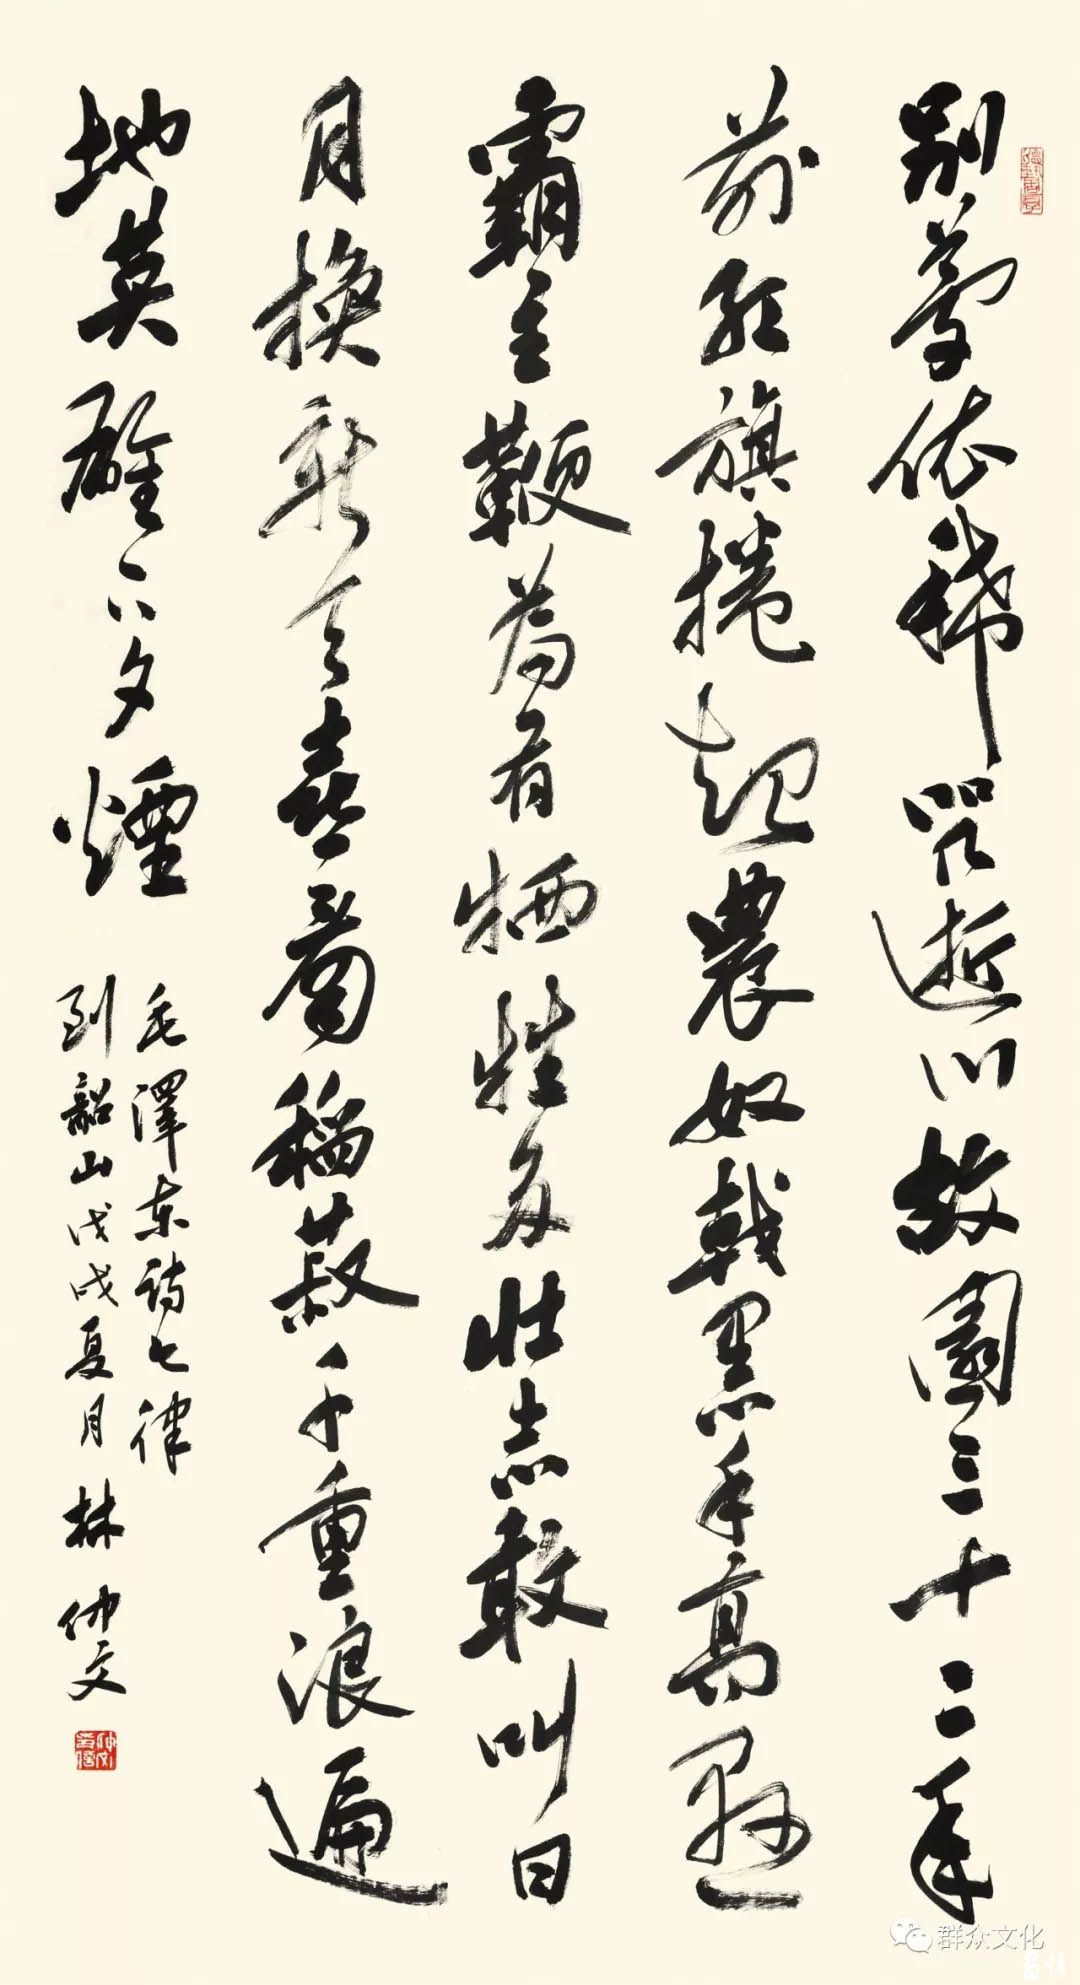 别夢依稀咒逝川故園三十二年
前红旗捲起農奴戟黑手高懸
霸主鞭為有牺牲多壮志敢叫日
月换新天喜看稻菽千重浪遍
地英雄下夕煙
毛澤東詩七律
到韶山戊戌夏月林仲文
群众文化